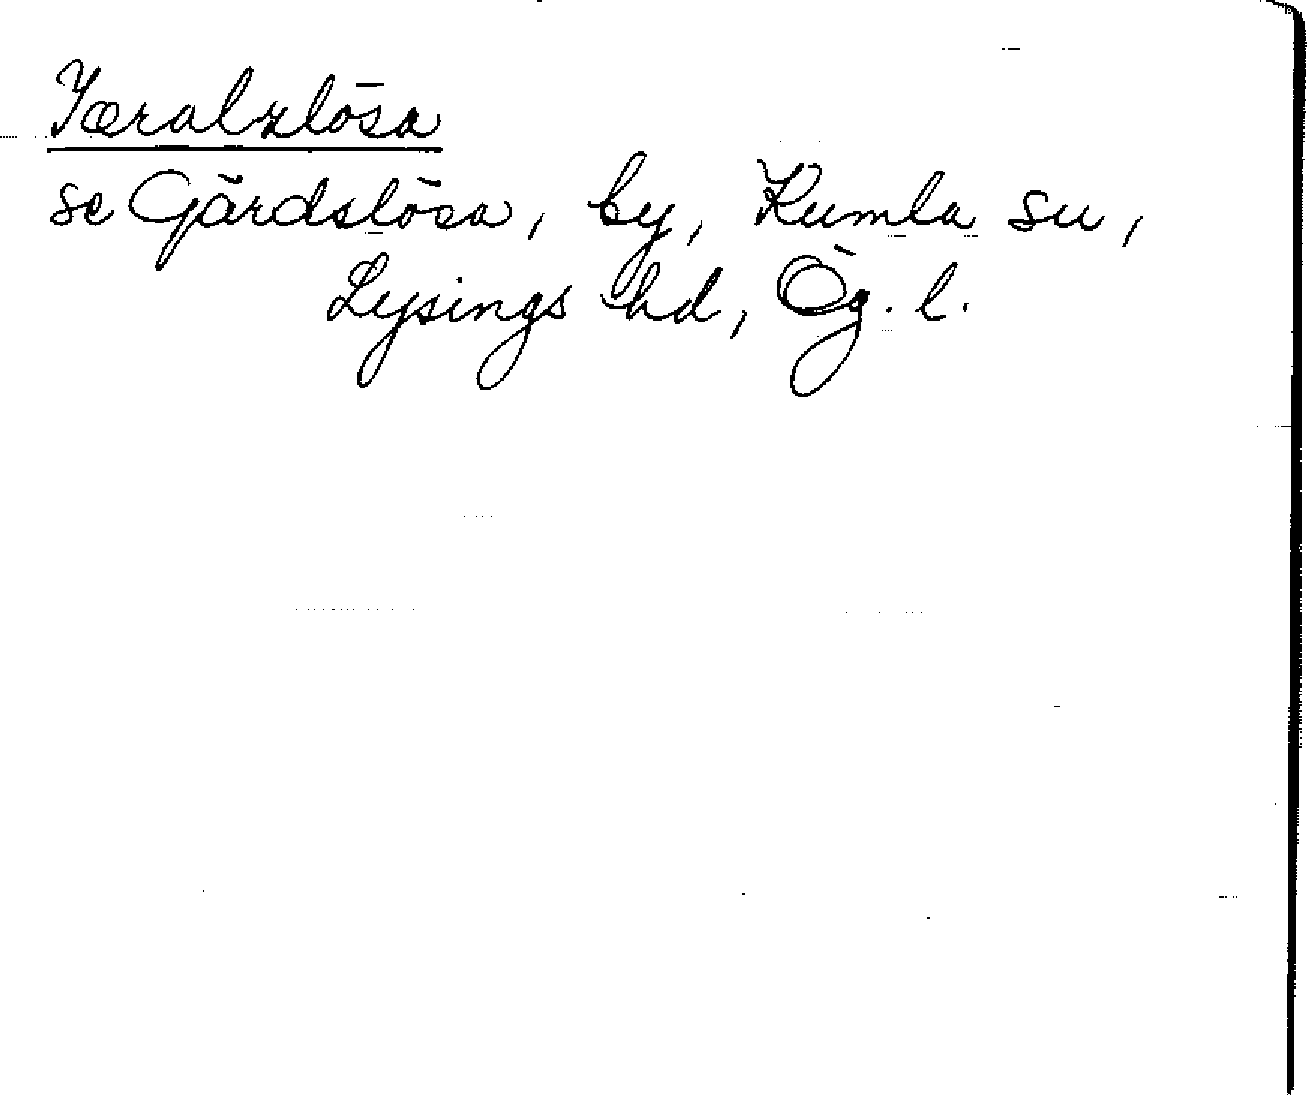 Iæralzlösa
se Gärdslösa, by, Kumla sn,
Lysings hd, Ög. l.